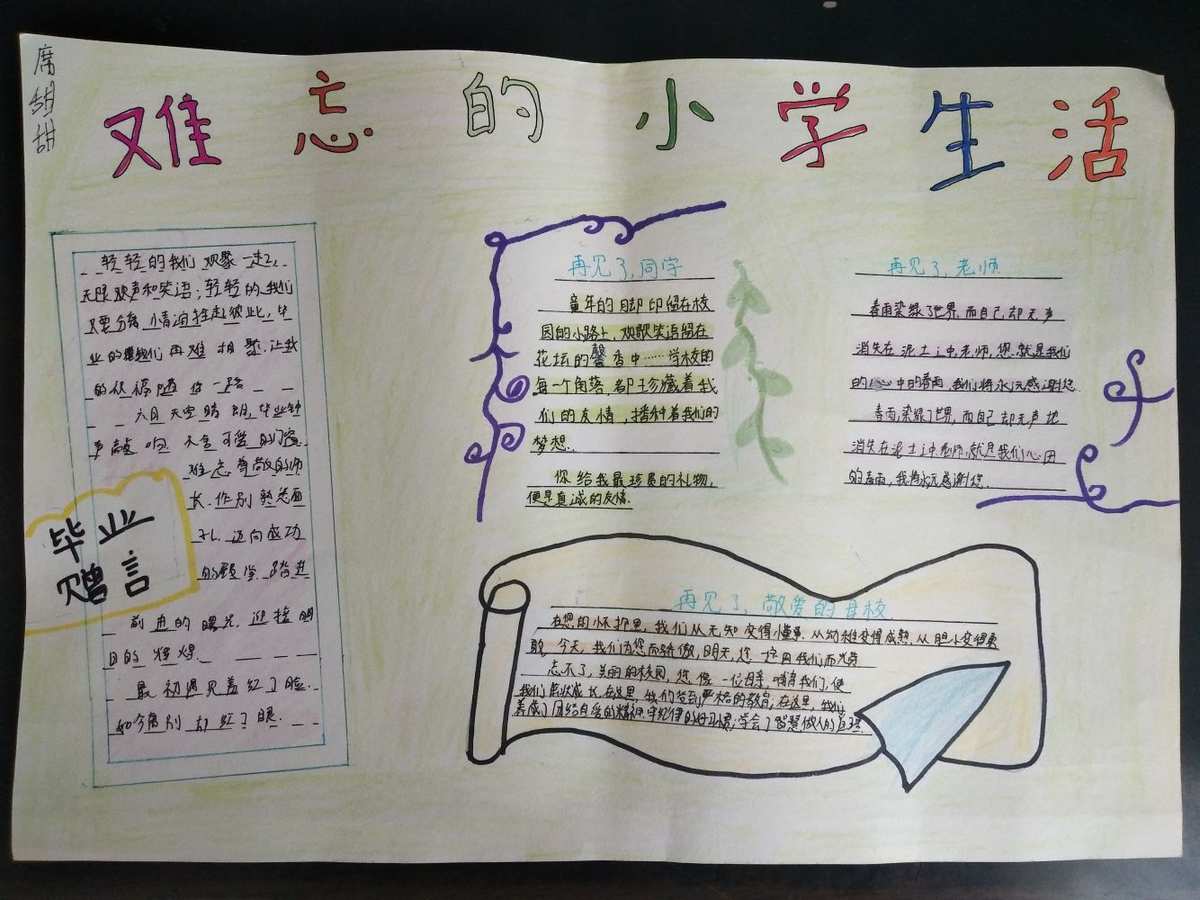 席甜甜
难忘的小学生活
轻轻的我们欢聚一起,
无限欢声和笑语;轻轻的我们
只要分离,情演绎走彼此,毕
业的我们再难相聚.让我
的祝福随你一路
六月天空晴朗,毕业钟
声敲响 不舍可爱的门窗
难忘尊敬的师
长.作别熟悉面
孔.迈向成功
的殿堂.踏进
前进的曙光.迎接明
日的辉煌
最初遇见羞红了脸.
如今离别却红了眼.
毕业
赠言
再见了,同学
童年的脚印留在校
园的小路上,欢歌笑语留在
花坛的馨香中……学校的
每一个角落,都珍藏着我
们的友情,播种着我们的
梦想.
你给我最珍贵的礼物,
便是真诚的友情.
再见了,老师
春雨染绿了世界,而自己,却无声
消失在泥土之中老师,您就是我们
的心中的春雨,我们将永远感谢您
春雨染绿了世界,而自己却无声地
消失在泥土之中老师,就是我们心田
的春雨,我将永远感谢您.
再见了,敬爱的母校
在您的怀抱里,我们从无知变得懂事.从幼稚变得成熟.从胆小变得勇
敢.今天,我们为您而骄傲,明天,您一定因我们而光荣
忘不了,美丽的校园,您像一位母亲,哺育我们,使
我们茁壮成长.在这里,我们受到严格的教育,在这里,我们
养成了团结自强的精神.守纪律的好习惯;学会了智慧做人的道理.